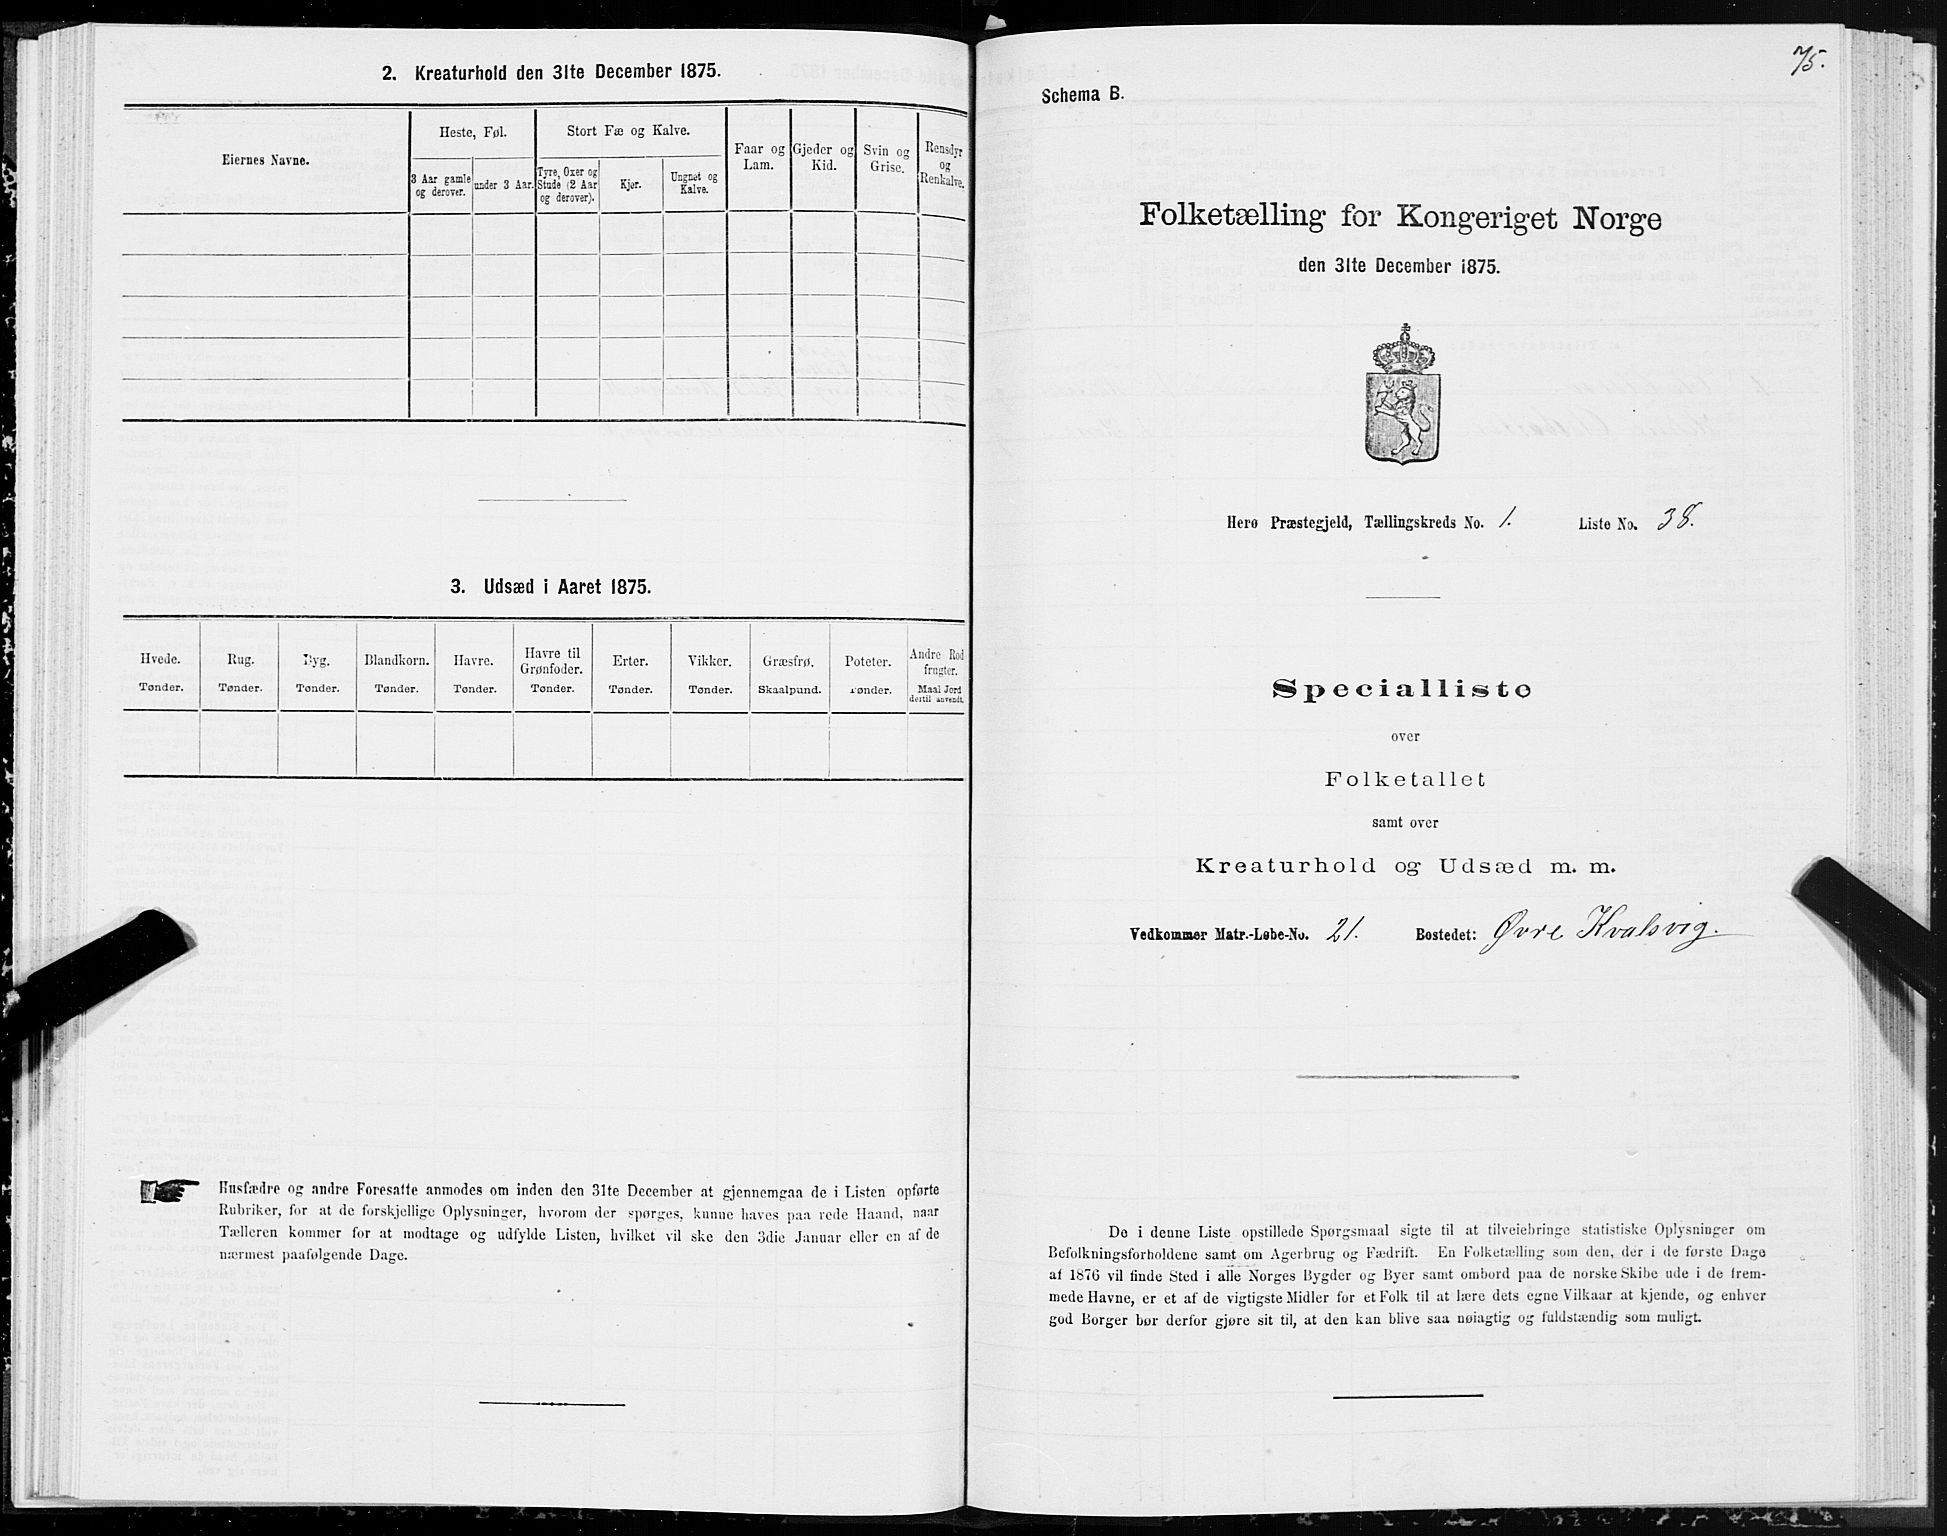 2. Kreaturhold den 31te December 1875.
Eiernes Navne.
Heste, Føl.
Stort Fæ og Kalve.
Faar og
Lam.
Gjeder og
Kid.
Svin og
Grise.
Rensdyr
og
Renkalve.
3 Aar gamle
og derover.
under 3 Aar.
Tyre, Oxer og
Stude (2 Aar
og derover).
Kjør.
Ungnøt og
Kalve.
3. Udsæd i Aaret 1875.
Hvede.
Tønder.
Rug.
Tønder.
Byg.
Tønder.
Blandkorn.
Tønder.
Havre.
Tønder.
Havre til
Grønfoder.
Tønder.
Erter.
Tønder.
Vikker.
Tønder.
Græsfrø.
Skaalpund.
Poteter.
Tønder.
Andre Rod
frugter.
Maal Jord
dertil anvendt.
Husfædre og andre Foresatte anmodes om inden den 31te December at gjennemgaa de i Listen opførte
Rubriker, for at de forskjellige Oplysninger, hvorom der spørges, kunne haves paa rede Haand, naar
Tælleren kommer for at modtage og udfylde Listen, hvilket vil ske den 3die Januar eller en af de
nærmest paafølgende Dage.
75.
Schema B.
Folketælling for Kongeriget Norge
den 31te December 1875.
Herø Præstegjeld, Tællingskreds No. 1. Liste No. 38.
Specialliste
over
Folketallet
samt over
Kreaturhold og Udsæd m. m.
Vedkommer Matr.-Løbe-No. 21. Bostedet: Øvre Kvalsvig.
De i denne Liste opstillede Spørgsmaal sigte til at tilveiebringe statistiske Oplysninger om
Befolkningsforholdene samt om Agerbrug og Fædrift. En Folketælling som den, der i de første Dage
af 1876 vil finde Sted i alle Norges Bygder og Byer samt ombord paa de norske Skibe ude i de frem-
mede Havne, er et af de vigtigste Midler for et Folk til at lære dets egne Vilkaar at kjende, og enhver
god Borger bør derfor gjøre sit til, at den kan blive saa nøiagtig og fuldstændig som muligt.